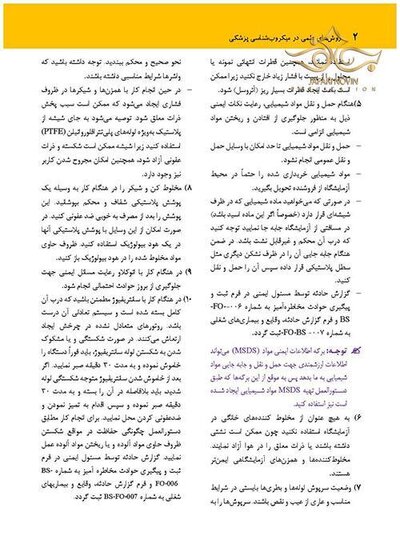 ۲ روش‌های علمی در میکروب‌شناسی پزشکی
JAFARINOVIN
استفاده نمائید. همچنین قطرات انتهائی نمونه یا
محلول را از پیپت با فشار زیاد خارج نکنید زیرا ممکن
است باعث ایجاد قطرات بسیار ریز (آئروسل) شود.
۵) هنگام حمل و نقل مواد شیمیایی، رعایت نکات ایمنی
ذیل به منظور جلوگیری از افتادن و ریختن مواد
شیمیایی الزامی است.
– حمل و نقل مواد شیمیایی تا حد امکان با وسایل حمل
و نقل عمومی انجام نشود.
– مواد شیمیایی خریداری شده را حتماً در محیط
آزمایشگاه از فروشنده تحویل بگیرید.
– در صورتی که می‌خواهید ماده شیمیایی که در ظرف
شیشه‌ای قرار دارد (خصوصاً اگر این ماده اسید باشد)
در مسافتی از آزمایشگاه جابه جا نمایید توجه کنید
که درب آن محکم و غیرقابل نشت باشد. در ضمن
هنگام جابه جایی آن را در ظرف نشکن دیگری مثل
سطل پلاستیکی قرار داده سپس آن را حمل و نقل
کنید.
– گزارش حادثه توسط مسئول ایمنی در فرم ثبت و
پیگیری حوادث مخاطره‌آمیز به شماره FO-۰۰۶-
BS و فرم گزارش حادثه، وقایع و بیماری‌های شغلی
به شماره FO-BS-۰۰۷ ثبت گردد.
توجه: برگه اطلاعات ایمنی مواد (MSDS) می‌تواند
اطلاعات ارزشمندی جهت حمل و نقل و جابه جایی مواد
شیمیایی به ما بدهد پس به موقع از این برگه‌ها که طبق
دستورالعمل تهیه MSDS مواد شیمیایی ایجاد شده
است نیز استفاده کنید.
۶) به هیچ عنوان از مخلوط کننده‌های خانگی در
آزمایشگاه استفاده نکنید چون ممکن است نشتی
داشته باشند یا ذرات معلق را در هوا آزاد نمایند.
مخلوط‌کننده‌ها و همزن‌های آزمایشگاهی ایمن‌تر
هستند.
۷) وضعیت سرپوش لوله‌ها و بطری‌ها بایستی در شرایط
مناسب و عاری از عیب و نقص باشند. سرپوش‌ها را به
نحو صحیح و محکم ببندید. توجه داشته باشید که
واشرها شرایط مناسبی داشته باشند.
– در حین انجام کار با همزن‌ها و شیکرها در ظروف
فشاری ایجاد می‌شود که ممکن است سبب پخش
ذرات معلق شود. توصیه می‌شود به جای شیشه از
پلاستیک به‌ویژه لوله‌های پلی‌تترافلوروائیلن (PTFE)
استفاده کنید زیرا شیشه ممکن است شکسته و ذرات
عفونی آزاد شود، همچنین امکان مجروح شدن کاربر
نیز وجود دارد.
۸) مخلوط کن و شیکر را در هنگام کار به وسیله یک
پوشش پلاستیکی شفاف و محکم بپوشانید. این
پوشش را بعد از مصرف به خوبی ضد عفونی کنید. در
صورت امکان از این وسایل با پوشش پلاستیکی آنها
در یک هود بیولوژیک استفاده کنید. ظروف حاوی
مواد مخلوط شده را در هود بیولوژیک باز کنید.
۹) در هنگام کار با اتوکلاو رعایت مسائل ایمنی جهت
جلوگیری از بروز حوادث احتمالی انجام شود.
۱۰) در هنگام کار با سانتریفیوژ مطمئن باشید که درب آن
کامل بسته شده است و سیستم تعادلی آن درست
باشد. روتورهای متعادل نشده در چرخش ایجاد
ارتعاش می‌کنند. در صورت شکستگی و یا مشکوک
به شکستن لوله سانتریفیوژ، باید فوراً دستگاه را
خاموش نموده و به مدت ۳۰ دقیقه صبر نمایید. اگر
بعد از خاموش شدن سانتریفیوژ متوجه شکستگی لوله
شدید باید بلافاصله در آن را بسته و به مدت ۳۰
دقیقه صبر نموده و سپس اقدام به تمیز نمودن و
ضدعفونی کردن محل نمایید. برای انجام کار مطابق
دستورالعمل چگونگی حفاظت در مواقع شکستن
ظروف حاوی مواد آلوده و یا ریختن مواد آلوده عمل
نمایید. گزارش حادثه توسط مسئول ایمنی در فرم
ثبت و پیگیری حوادث مخاطره آمیز به شماره BS-
FO-006 و فرم گزارش حادثه، وقایع و بیماریهای
شغلی به شماره BS-FO-007 ثبت گردد.